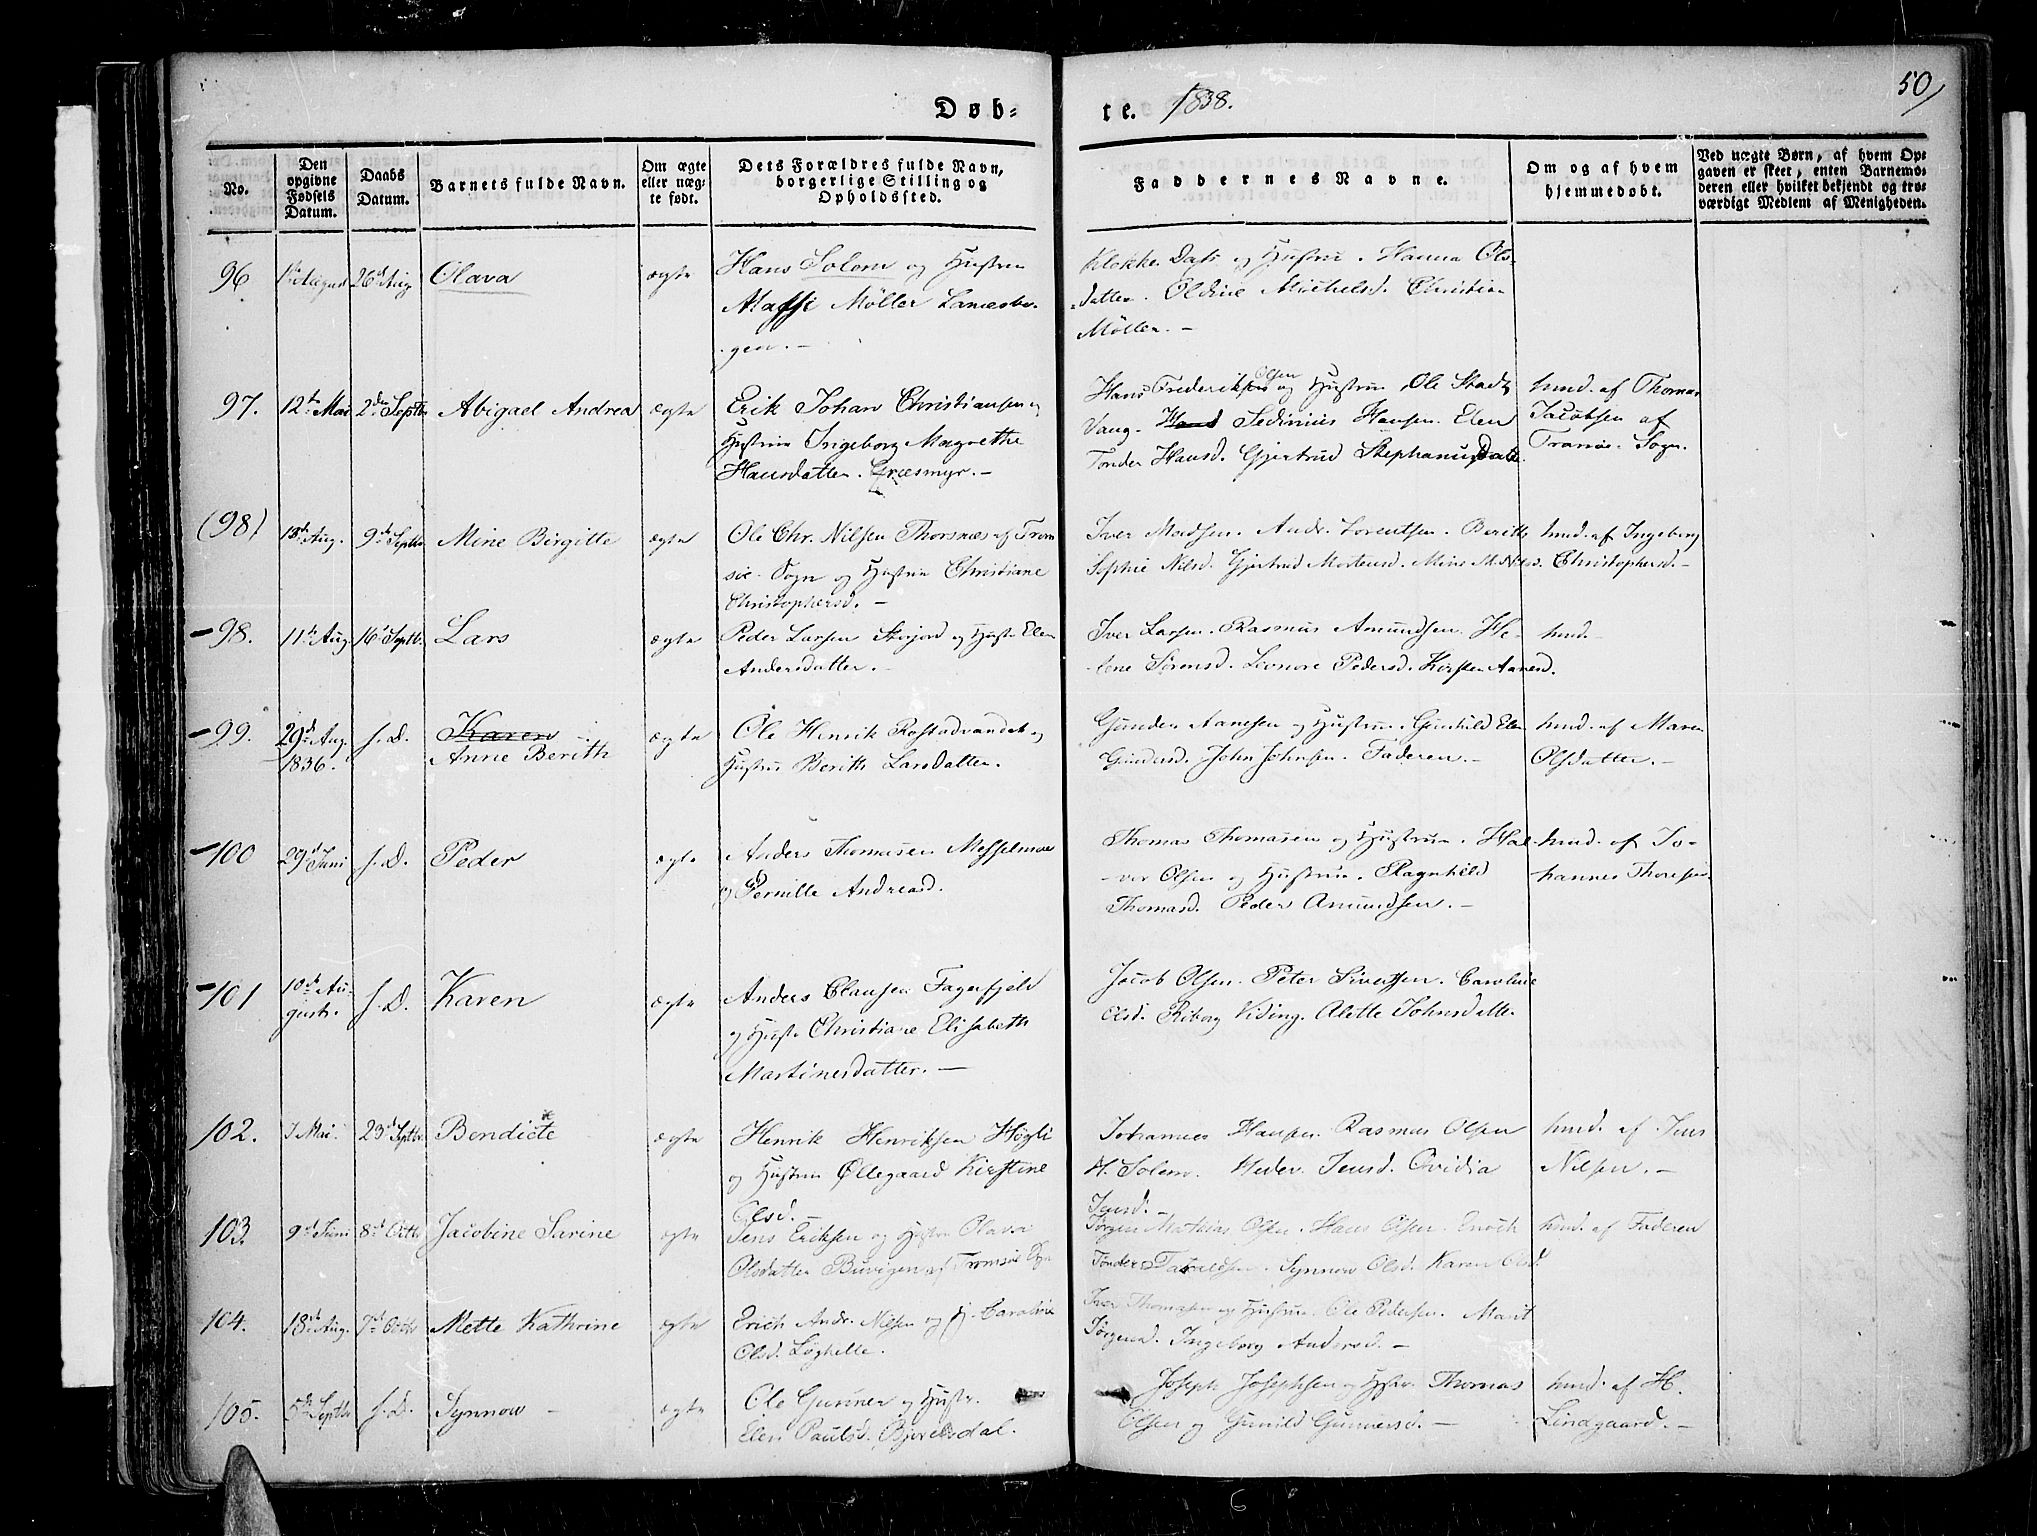 50
Døb-
te. 1838.
No.
Den opgivne Fødsels Datum.
Daabs Datum.
Barnets fulde Navn.
Om ægte eller uægte født.
Dets Forældres fulde Navn, borgerlige Stilling og Opholdssted.
Faddernes Navne.
Om og af hvem hjemmedøbt.
Ved uægte Børn, af hvem Opgaven er skeet, enten Barnemoderen eller hvilket bekjendt og troværdigt Medlem af Menigheden.
96 26d Aug Olava ægte Hans Solem og Hustru
Møller
Klokker og Hustru. Hanna Ols-
datter. Oldine Michelsd. Christian
Møller. –
97. 12te Mai 2den Septbr Abigael Andrea ægte Erik Johan Christiansen og
Hustrue Ingeborg Margrethe
Hansdatter. Græsmyr. –
Hans Frederiksen Olsen og Hustrue, Ole Stads
Vang. Hans Sedinius Hansen. Elen
Tonder Hansd. Gjertrud Stephanusdatt.
hmd. af Thomas
Jacobsen af
Tranøe Sogn.
(98) 18de Aug. 9de Septbr. Mine Birgitte ægte Ole Chr. Nilsen Thorsnæs af Trom
søe Sogn og Hustrue Christiane
Christophersd. –
Iver Madsen. Andr. Lorentsen. Berith
Sophie Nilsd. Gjertrud Mortensd. Mine M. Nilsd.
hmd. af Ingeborg
Christophersd. –
98. 11te Aug. 16d Septbr. Lars ægte Peder Larsen og Hustr. Elen
Andersdatter. –
Iver Larsen. Rasmus Amundsen. He-
lene Sørensd. Leonore Pedersd. Kirsten Aanesd.
hmd. –
99. 29d Aug. 1836. s. D. Karen
Anne Berith ægte Ole Henrik Rostadvandet og
Hustrue Berith Larsdatter.
Gunder Aanesen og Hustrue. Gunhild Elen
Gundersd. John Johnsen. Faderen. –
hmd. af Maren
Olsdatter. –
100 27d Juni s. D. Peder ægte Anders Thomasen Messelmoe
og Pernille Andreasd.
Thomas Thomasen og Hustrue. Hal-
vor Olsen og Hustrue. Ragnhild
Thomasd. Peder Amundsen. –
hmd. af Jo-
hannes Thoresen.
101 10de Au-
gust. s. D. Karen ægte Anders Clausen Fagerfjeld
og Hustr. Christiane Elisabeth
Martinesdatter. –
Jacob Olsen. Peter Sivertsen. Caroline
Olsd. Riborg Kiding. Alette Johnsdatte.
102. 7 Mai. 23d Septbr. Bendicte ægte Henrik Henriksen Høgli
og Hustrue Øllegaard Kirstine
Olsd. –
Johannes Hansen. Rasmus Olsen
H. Solem. Jensd. Ovidia
Jensd. –
hmd. af Jens
Nilsen. –
103. 9d Juni 8d Octbr Jacobine Sarine ægte Jens Eriksen og Hustrue Olava
Olsdatter Buvigen af Tromsøe Sogn
Jørgen Mathias Olsen. Hans Olsen. Enoch
Tønder. Synnow Olsd. Karen Olsd.
hmd. af Faderen
104. 18de Aug. 7de Octbr Mette Kathrine ægte Erich Andr. Nilsen og H. Caroline
Olsd. Løghelle.
Iver Thomasen og Hustrue. Ole Pedersen. Marit
Jørgensd. Ingeborg Andersd. –
105. 5te Septbr s. D. Synnow – ægte Ole Gunner og Hustr.
Elen Paulsd. Bjorelsdal.
Joseph Josephsen og Hustr. Thomas
Olsen og Gunild Gunnersd. –
hmd. af H.
Lindgaard. –
6